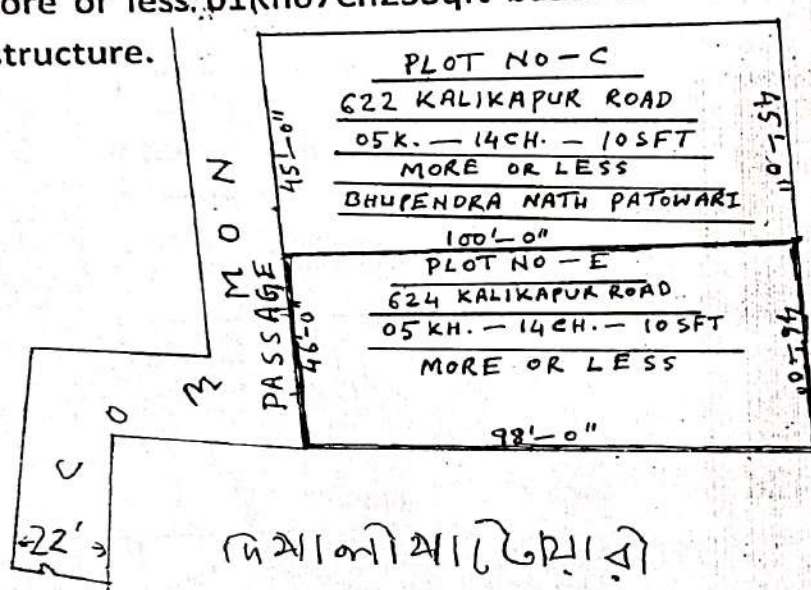 ore or less. 01Kh07Ch23Sqft
structure.
PLOT NO - C
622 KALIKAPUR ROAD
05K. - 14CH. - 10SFT
MORE OR LESS
BHUPENDRA NATH PATOWARI
45'-0"
45'-0"
100'-0"
PLOT NO - E
624 KALIKAPUR ROAD
05 KH. - 14 CH. - 10 SFT
MORE OR LESS
46'-0"
46'-0"
98'-0"
COMMON
PASSAGE
22'